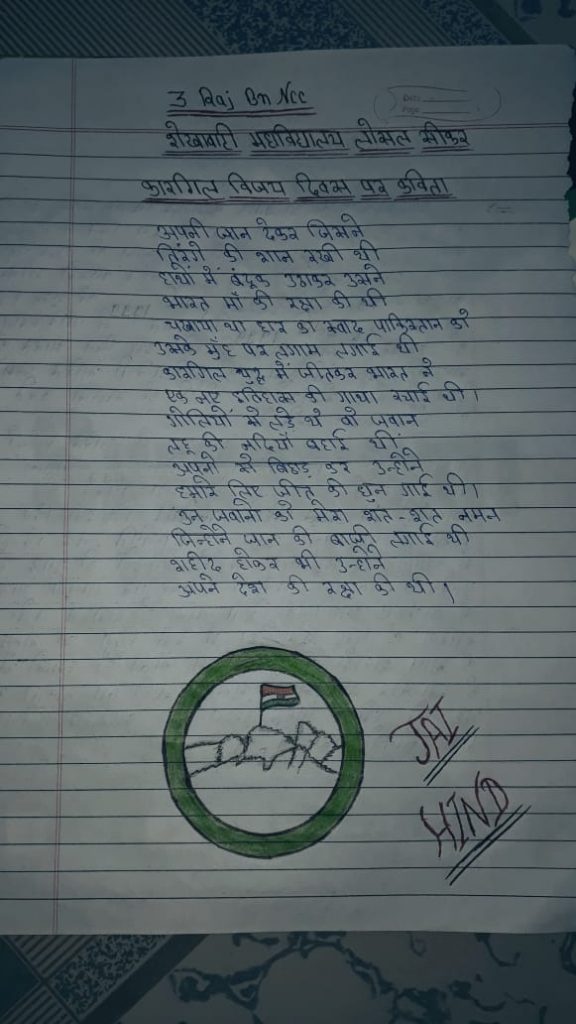 3 Raj Bn Ncc
Date
Page
शेखावाटी महाविद्यालय लोसल सीकर
कारगिल विजय दिवस पर कविता
अपनी जान देकर जिसने
तिरंगे की शान रखी थी
हाथों में बंदूक उठाकर उसने
भारत माँ की रक्षा की थी
चखाया था हार का स्वाद पाकिस्तान को
उसके मुँह पर लगाम लगाई थी
कारगिल युद्ध में जीतकर भारत ने
एक नए इतिहास की गाथा रचाई थी।
गोलियों से लड़े थे वो जवान
लहू की नदियाँ बहाई थीं,
अपनो से बिछड़ कर उन्होंने
हमारे लिए जीत की धुन गाई थी।
उन जवानो को मेरा शत-शत नमन
जिन्होंने जान की बाजी लगाई थी
शहीद होकर भी उन्होंने
अपने देश की रक्षा की थी।
JAI
HIND